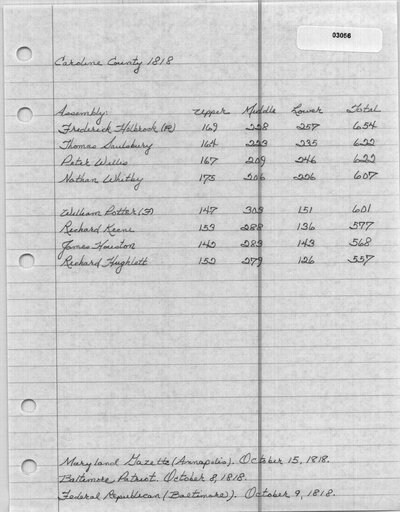 03056
Caroline County 1818
Assembly: Upper Middle Lower Total
Frederick Holbrook (R) 169 228 257 654
Thomas Saulsbury 164 223 235 622
Peter Willis 167 209 246 622
Nathan Whitby 175 206 226 607
William Potter (F) 147 303 151 601
Richard Keene 153 288 136 577
James Houston 142 283 143 568
Richard Hughlett 152 279 126 557
Maryland Gazette (Annapolis). October 15, 1818.
Baltimore Patriot. October 8, 1818.
Federal Republican (Baltimore). October 9, 1818.